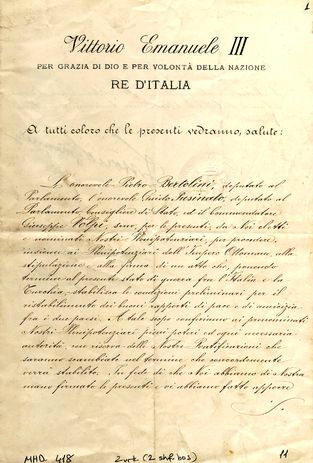 1
Vittorio Emanuele III
PER GRAZIA DI DIO E PER VOLONTÀ DELLA NAZIONE
RE D'ITALIA
A tutti coloro che le presenti vedranno, salute:
L'onorevole Pietro Bertolini, deputato al
Parlamento, l'onorevole Guido Fusinato, deputato al
Parlamento, Consigliere di Stato, ed il Commendatore
Giuseppe Volpi, sono, per le presenti, da Noi eletti
e nominati Nostri Plenipotenziari, per procedere,
insieme ai Plenipotenziari dell'Impero Ottomano, alla
stipulazione e alla firma di un atto che, ponendo
termine al presente stato di guerra fra l'Italia e la
Turchia, stabilisca le condizioni preliminari per il
ristabilimento dei buoni rapporti di pace e di amicizia
fra i due paesi. A tale scopo conferiamo ai prenominati
Nostri Plenipotenziari pieni poteri ed ogni necessaria
autorità, con riserva delle Nostre Ratificazioni che
saranno scambiate nel termine che concordemente
verrà stabilito. In fede di che Noi abbiamo di Nostra
mano firmato le presenti e vi abbiamo fatto apporre
MHD. 418
11